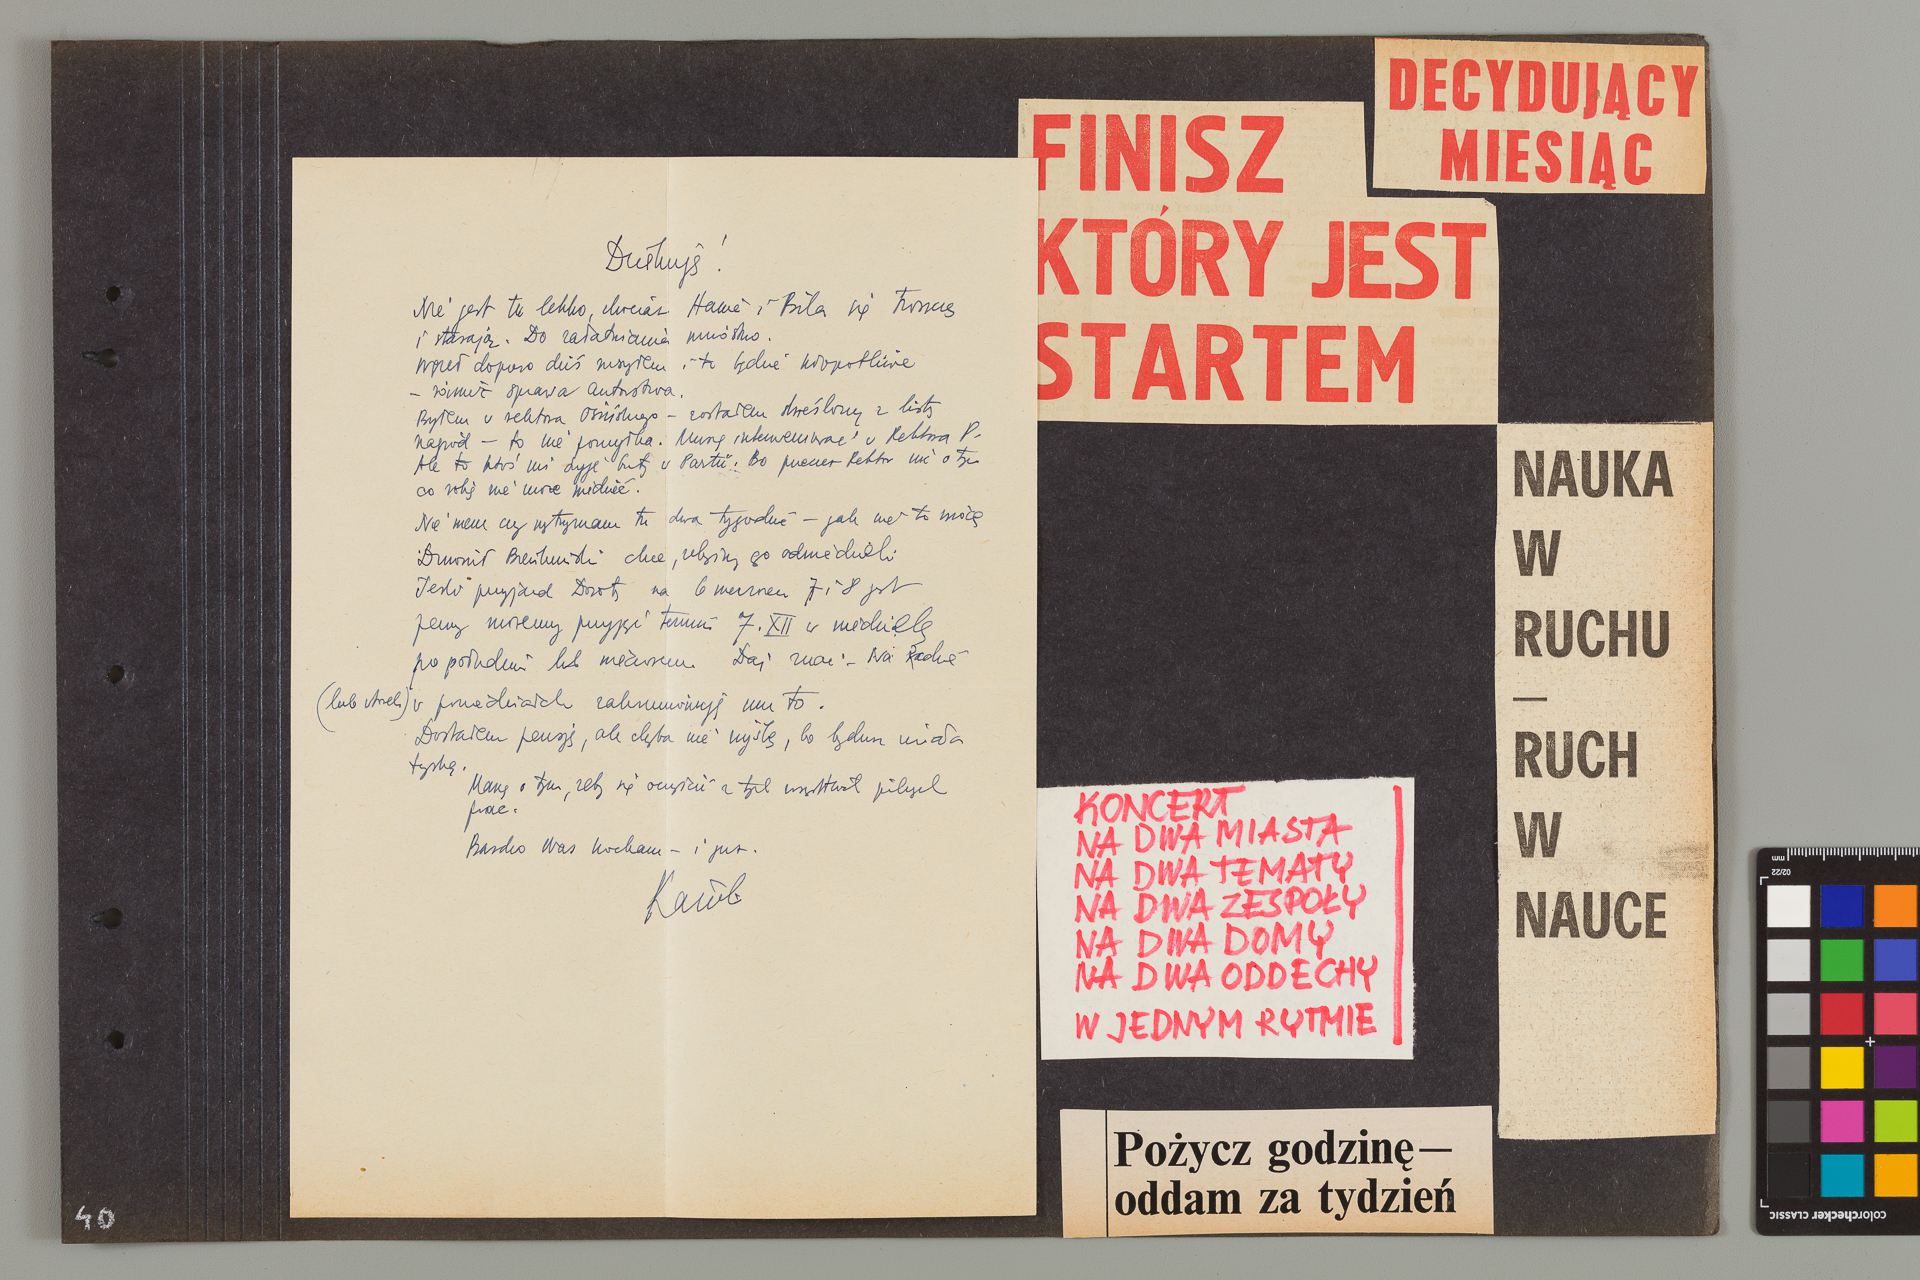 Dziękuję!
Nie jest tu lekko, chociaż Hania i Bila się troszczą
i starają. Do załatwienia mnóstwo.
dopiero dziś i to będzie kłopotliwe
– również sprawa autorstwa.
Byłem u rektora – zostałem skreślony z listy
nagród – to nie pomyłka. Muszę interweniować u Rektora P.
Ale to ktoś mi buty w Partii. Bo przecież Rektor nic o tym
co robię nie może wiedzieć.
Nie wiem czy wytrzymam tu dwa tygodnie – jak to
chce, żebyśmy go odwiedzili
Jeśli przyjazd Doroty na 6 7 i 8 jest
pewny możemy przyjąć termin 7.XII w niedzielę
po południu lub wieczorem. Daj znać –
(lub wtorek) w poniedziałek zakomunikuję mu to.
Dostałem pensję, ale chyba nie wyślę, bo będzie
Marzę o tym, żeby się oczyścić z tych wszystkich pilnych
prac.
Bardzo Was kocham – i już.
DECYDUJĄCY
MIESIĄC
FINISZ
KTÓRY JEST
STARTEM
NAUKA
W
RUCHU
—
RUCH
W
NAUCE
KONCERT
NA DWA MIASTA
NA DWA TEMATY
NA DWA ZESPOŁY
NA DWA DOMY
NA DWA ODDECHY
W JEDNYM RYTMIE
Pożycz godzinę—
oddam za tydzień
40
mm
02/22
colorchecker CLASSIC